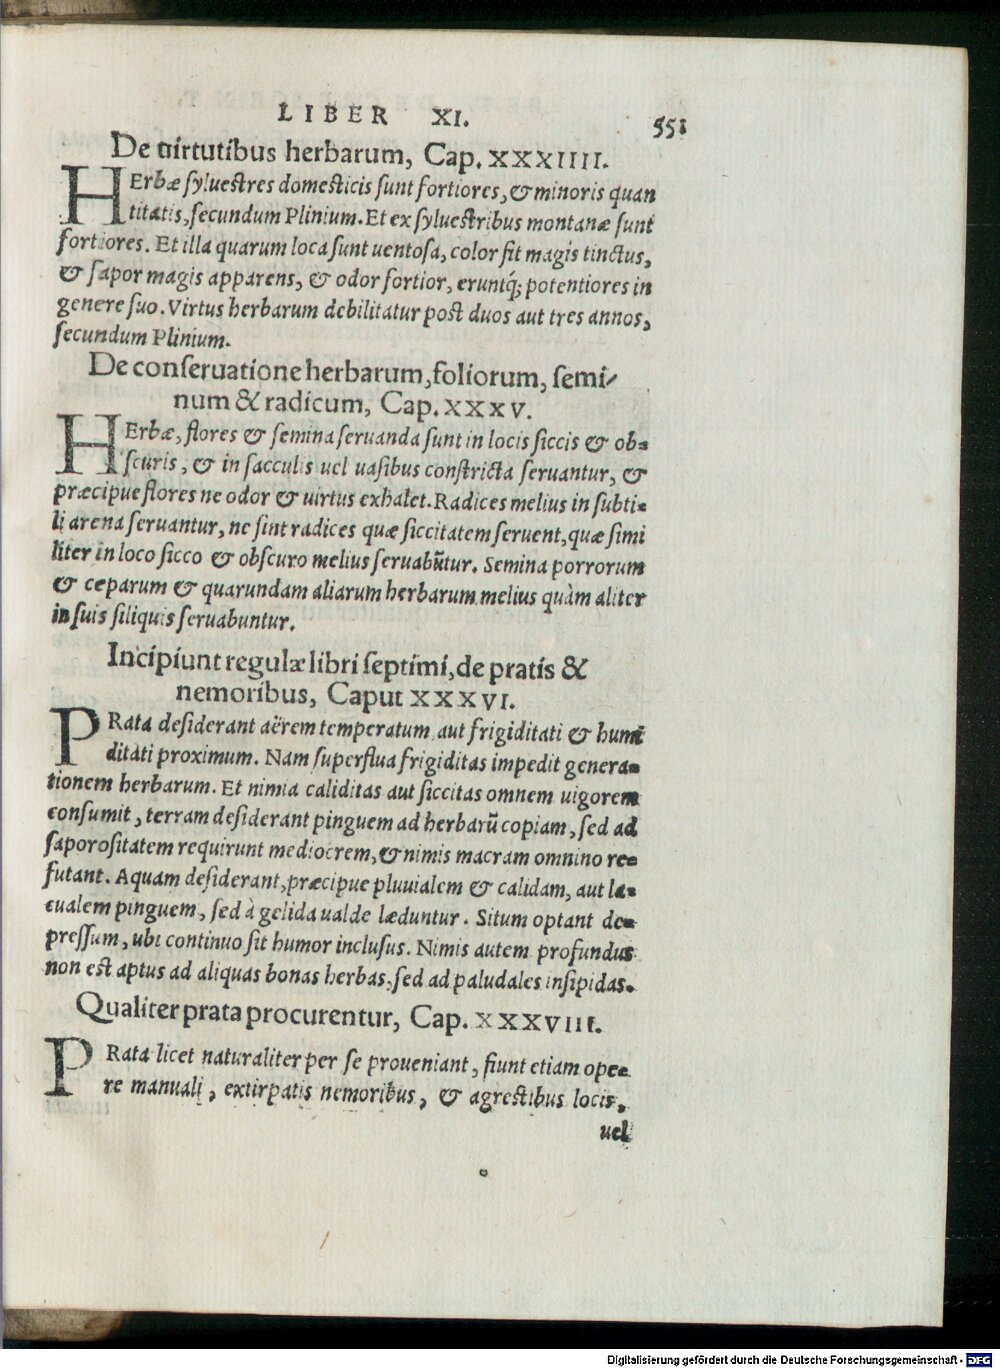 LIBER XI. 551
De uirtutibus herbarum, Cap. XXXIIII.
HErbæ syluestres domesticis sunt fortiores, & minoris quan
titatis, secundum Plinium. Et ex syluestribus montanæ sunt
fortiores. Et illa quarum loca sunt uentosa, color fit magis tinctus,
& sapor magis apparens, & odor fortior, eruntq́; potentiores in
genere suo. Virtus herbarum debilitatur post duos aut tres annos,
secundum Plinium.
De conseruatione herbarum, foliorum, semi/
num & radicum, Cap. XXXV.
HErbæ, flores & semina seruanda sunt in locis siccis & ob=
scuris, & in sacculis uel uasibus constricta seruantur, &
præcipue flores ne odor & uirtus exhalet. Radices melius in subti=
li arena seruantur, ne sint radices quæ siccitatem seruent, quæ simi
liter in loco sicco & obscuro melius seruabũtur. Semina porrorum
& ceparum & quarundam aliarum herbarum melius quàm aliter
in suis siliquis seruabuntur.
Incipiunt regulæ libri septimi, de pratis &
nemoribus, Caput XXXVI.
PRata desiderant aërem temperatum aut frigiditati & humi
ditati proximum. Nam superflua frigiditas impedit genera=
tionem herbarum. Et nimia caliditas aut siccitas omnem uigorem
consumit, terram desiderant pinguem ad herbarũ copiam, sed ad
saporositatem requirunt mediocrem, & nimis macram omnino re=
futant. Aquam desiderant, præcipue pluuialem & calidam, aut la=
cualem pinguem, sed à gelida ualde læduntur. Situm optant de=
pressum, ubi continuo sit humor inclusus. Nimis autem profundus
non est aptus ad aliquas bonas herbas, sed ad paludales insipidas.
Qualiter prata procurentur, Cap. XXXVIII.
PRata licet naturaliter per se proueniant, fiunt etiam ope=
re manuali, extirpatis nemoribus, & agrestibus locis,
uel
Digitalisierung gefördert durch die Deutsche Forschungsgemeinschaft - DFG